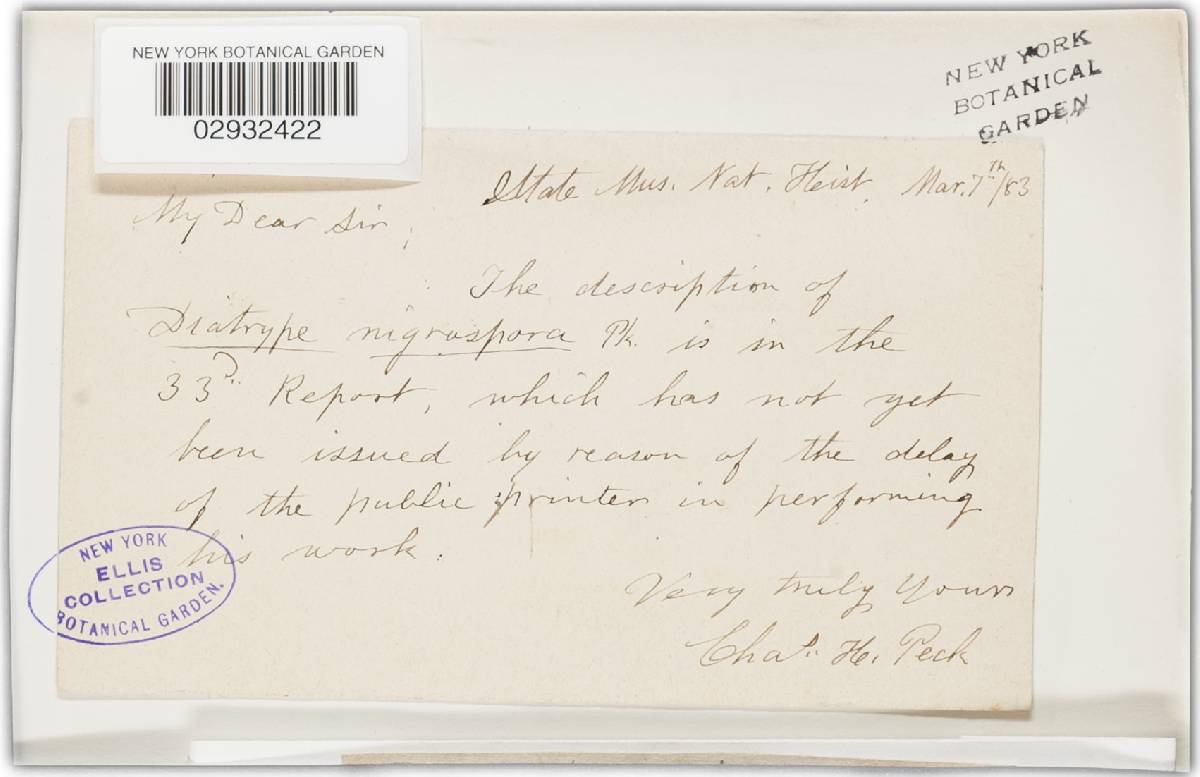 NEW YORK BOTANICAL GARDEN
02932422
NEW YORK
BOTANICAL
GARDEN
State Mus. Nat. Hist. Mar. 7th/83
My Dear Sir,
The description of
Diatrype nigrospora Pk. is in the
33d. Report, which has not yet
been issued by reason of the delay
of the public printer in performing
his work.
Very truly yours
Chas. H. Peck
NEW YORK
ELLIS
COLLECTION
BOTANICAL GARDEN.